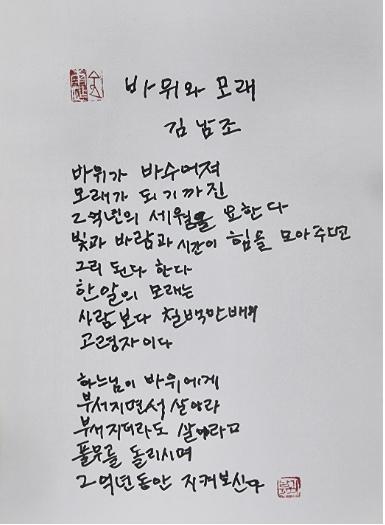 바위와 모래
김남조
바위가 바수어져
모래가 되기까진
2억년의 세월을 요한다
빛과 바람과 시간이 힘을 모아주면
그리 된다 한다
한알의 모래는
사람보다 칠백만배의
고령자이다
하느님이 바위에게
부서지면서 살아라
부서지더라도 살아라고
풀무를 돌리시며
2억년동안 지켜보신다